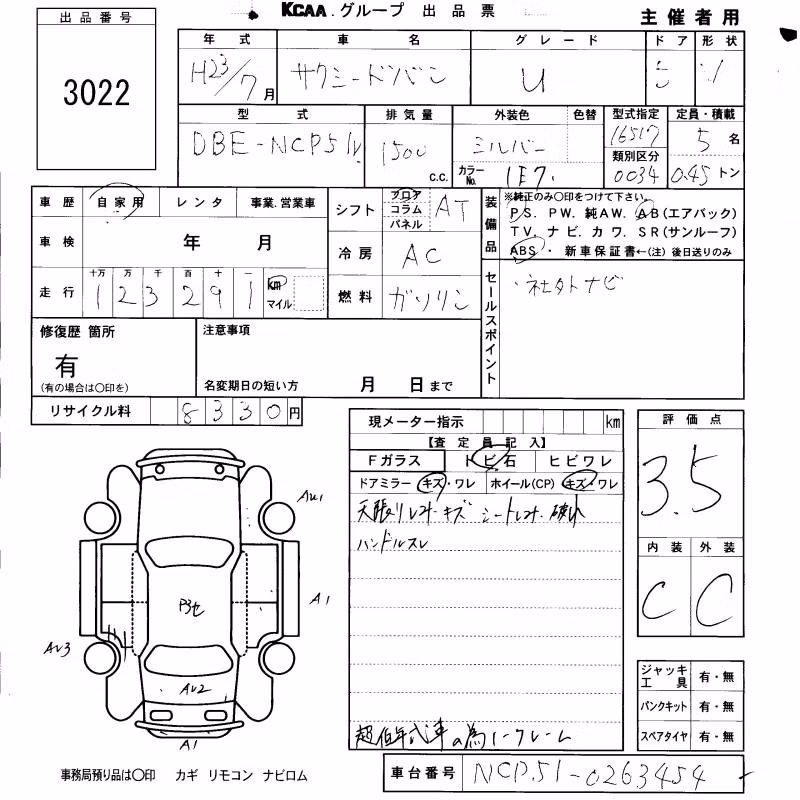 KCAA.グループ 出品票
主催者用
出品番号
3022
年式 車名 グレード ドア 形状
H23/7月 サクシードバン U
型式 排気量 外装色 色替 型式指定 定員・積載
DBE-NCP51V 1500 c.c. シルバー 16517 5名
カラーNo. 1E7 類別区分 0034 0.45トン
車歴 自家用 レンタ 事業.営業車
車検 年 月
走行 十万 万 千 百 十 一
123291 km マイル
シフト フロア コラム パネル AT
冷房 AC
燃料 ガソリン
装備品
※純正のみ○印をつけて下さい
PS. PW. 純AW. AB(エアバック)
TV. ナビ. カワ. SR(サンルーフ)
ABS・新車保証書←(注) 後日送りのみ
セールスポイント
・社外ナビ
修復歴 箇所
有
(有の場合は○印を)
注意事項
名変期日の短い方 月 日まで
リサイクル料 8330円
現メーター指示 km
【査定員記入】
Fガラス トビ石 ヒビワレ
ドアミラー キズ・ワレ ホイール(CP) キズ・ワレ
天張りレオキ・キズ シート
ハンドルスレ
超低年式車の為ノークレーム
評価点
3.5
内装 外装
C C
ジャッキ工具 有・無
パンクキット 有・無
スペアタイヤ 有・無
AU1
A1
AU3
AU2
A1
事務局預り品は○印 カギ リモコン ナビロム
車台番号 NCP51-0263454